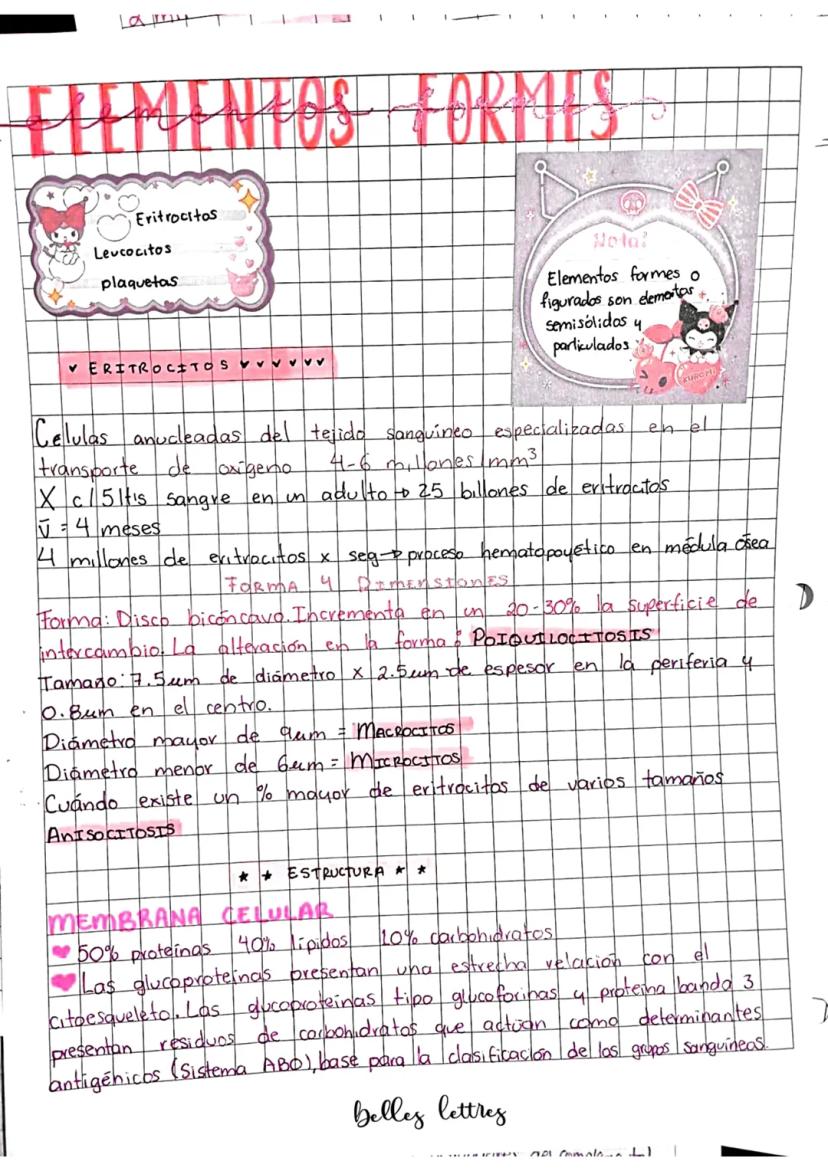 ELEMENTOS FORMES
elementos formes
Eritrocitos
Leucocitos
plaquetas
Nota:
Elementos formes o
figurados son elementos
semisólidos y
particulados
KUROMI
ERITROCITOS
Celulas anucleadas del tejido sanguíneo especializadas en el
transporte de oxígeno 4-6 millones/mm³
X c/5lts sangre en un adulto → 25 billones de eritrocitos
v̄ = 4 meses
4 millones de eritrocitos x seg → proceso hematopoyético en médula ósea
FORMA Y DIMENSIONES
Forma: Disco bicóncavo. Incrementa en un 20-30% la superficie de
intercambio. La alteración en la forma: POIQUILOCITOSIS
Tamaño: 7.5um de diámetro x 2.5um de espesor en la periferia y
0.8um en el centro.
Diámetro mayor de 9um = MACROCITOS
Diámetro menor de 6um = MICROCITOS
Cuándo existe un % mayor de eritrocitos de varios tamaños
ANISOCITOSIS
★ ★ ESTRUCTURA ★ ★
MEMBRANA CELULAR
50% proteínas 40% lípidos 10% carbohidratos
Las glucoproteínas presentan una estrecha relación con el
citoesqueleto. Las glucoproteínas tipo glucoforinas y proteína banda 3
presentan residuos de carbohidratos que actúan como determinantes
antigénicos (Sistema ABO), base para la clasificación de los grupos sanguíneos.
belles lettres